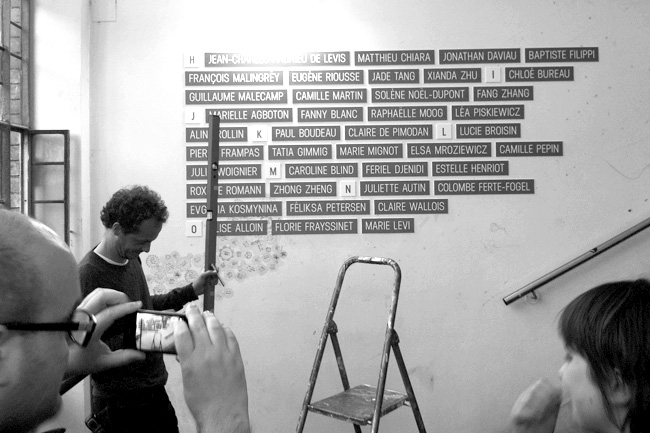 H JEAN-CHARLES DE LEVIS MATTHIEU CHIARA JONATHAN DAVIAU BAPTISTE FILIPPI
FRANÇOIS MALINGRËY EUGÉNE RIOUSSE JADE TANG XIANDA ZHU I CHLOÉ BUREAU
GUILLAUME MALECAMP CAMILLE MARTIN SOLÈNE NOËL-DUPONT FANG ZHANG
J MARIELLE AGBOTON FANNY BLANC RAPHAELLE MOOG LÉA PISKIEWICZ
K PAUL BOUDEAU CLAIRE DE PIMODAN L LUCIE BROISIN
FRAMPAS TATIA GIMMIG MARIE MIGNOT ELSA MROZIEWICZ CAMILLE PEPIN
WOIGNIER M CAROLINE BLIND FERIEL DJENIDI ESTELLE HENRIOT
ROMANN ZHONG ZHENG N JULIETTE AUTIN COLOMBE FERTE-FOGEL
KOSMYNINA FÈLIKSA PETERSEN CLAIRE WALLOIS
O ALLOIN FLORIE FRAYSSINET MARIE LEVI